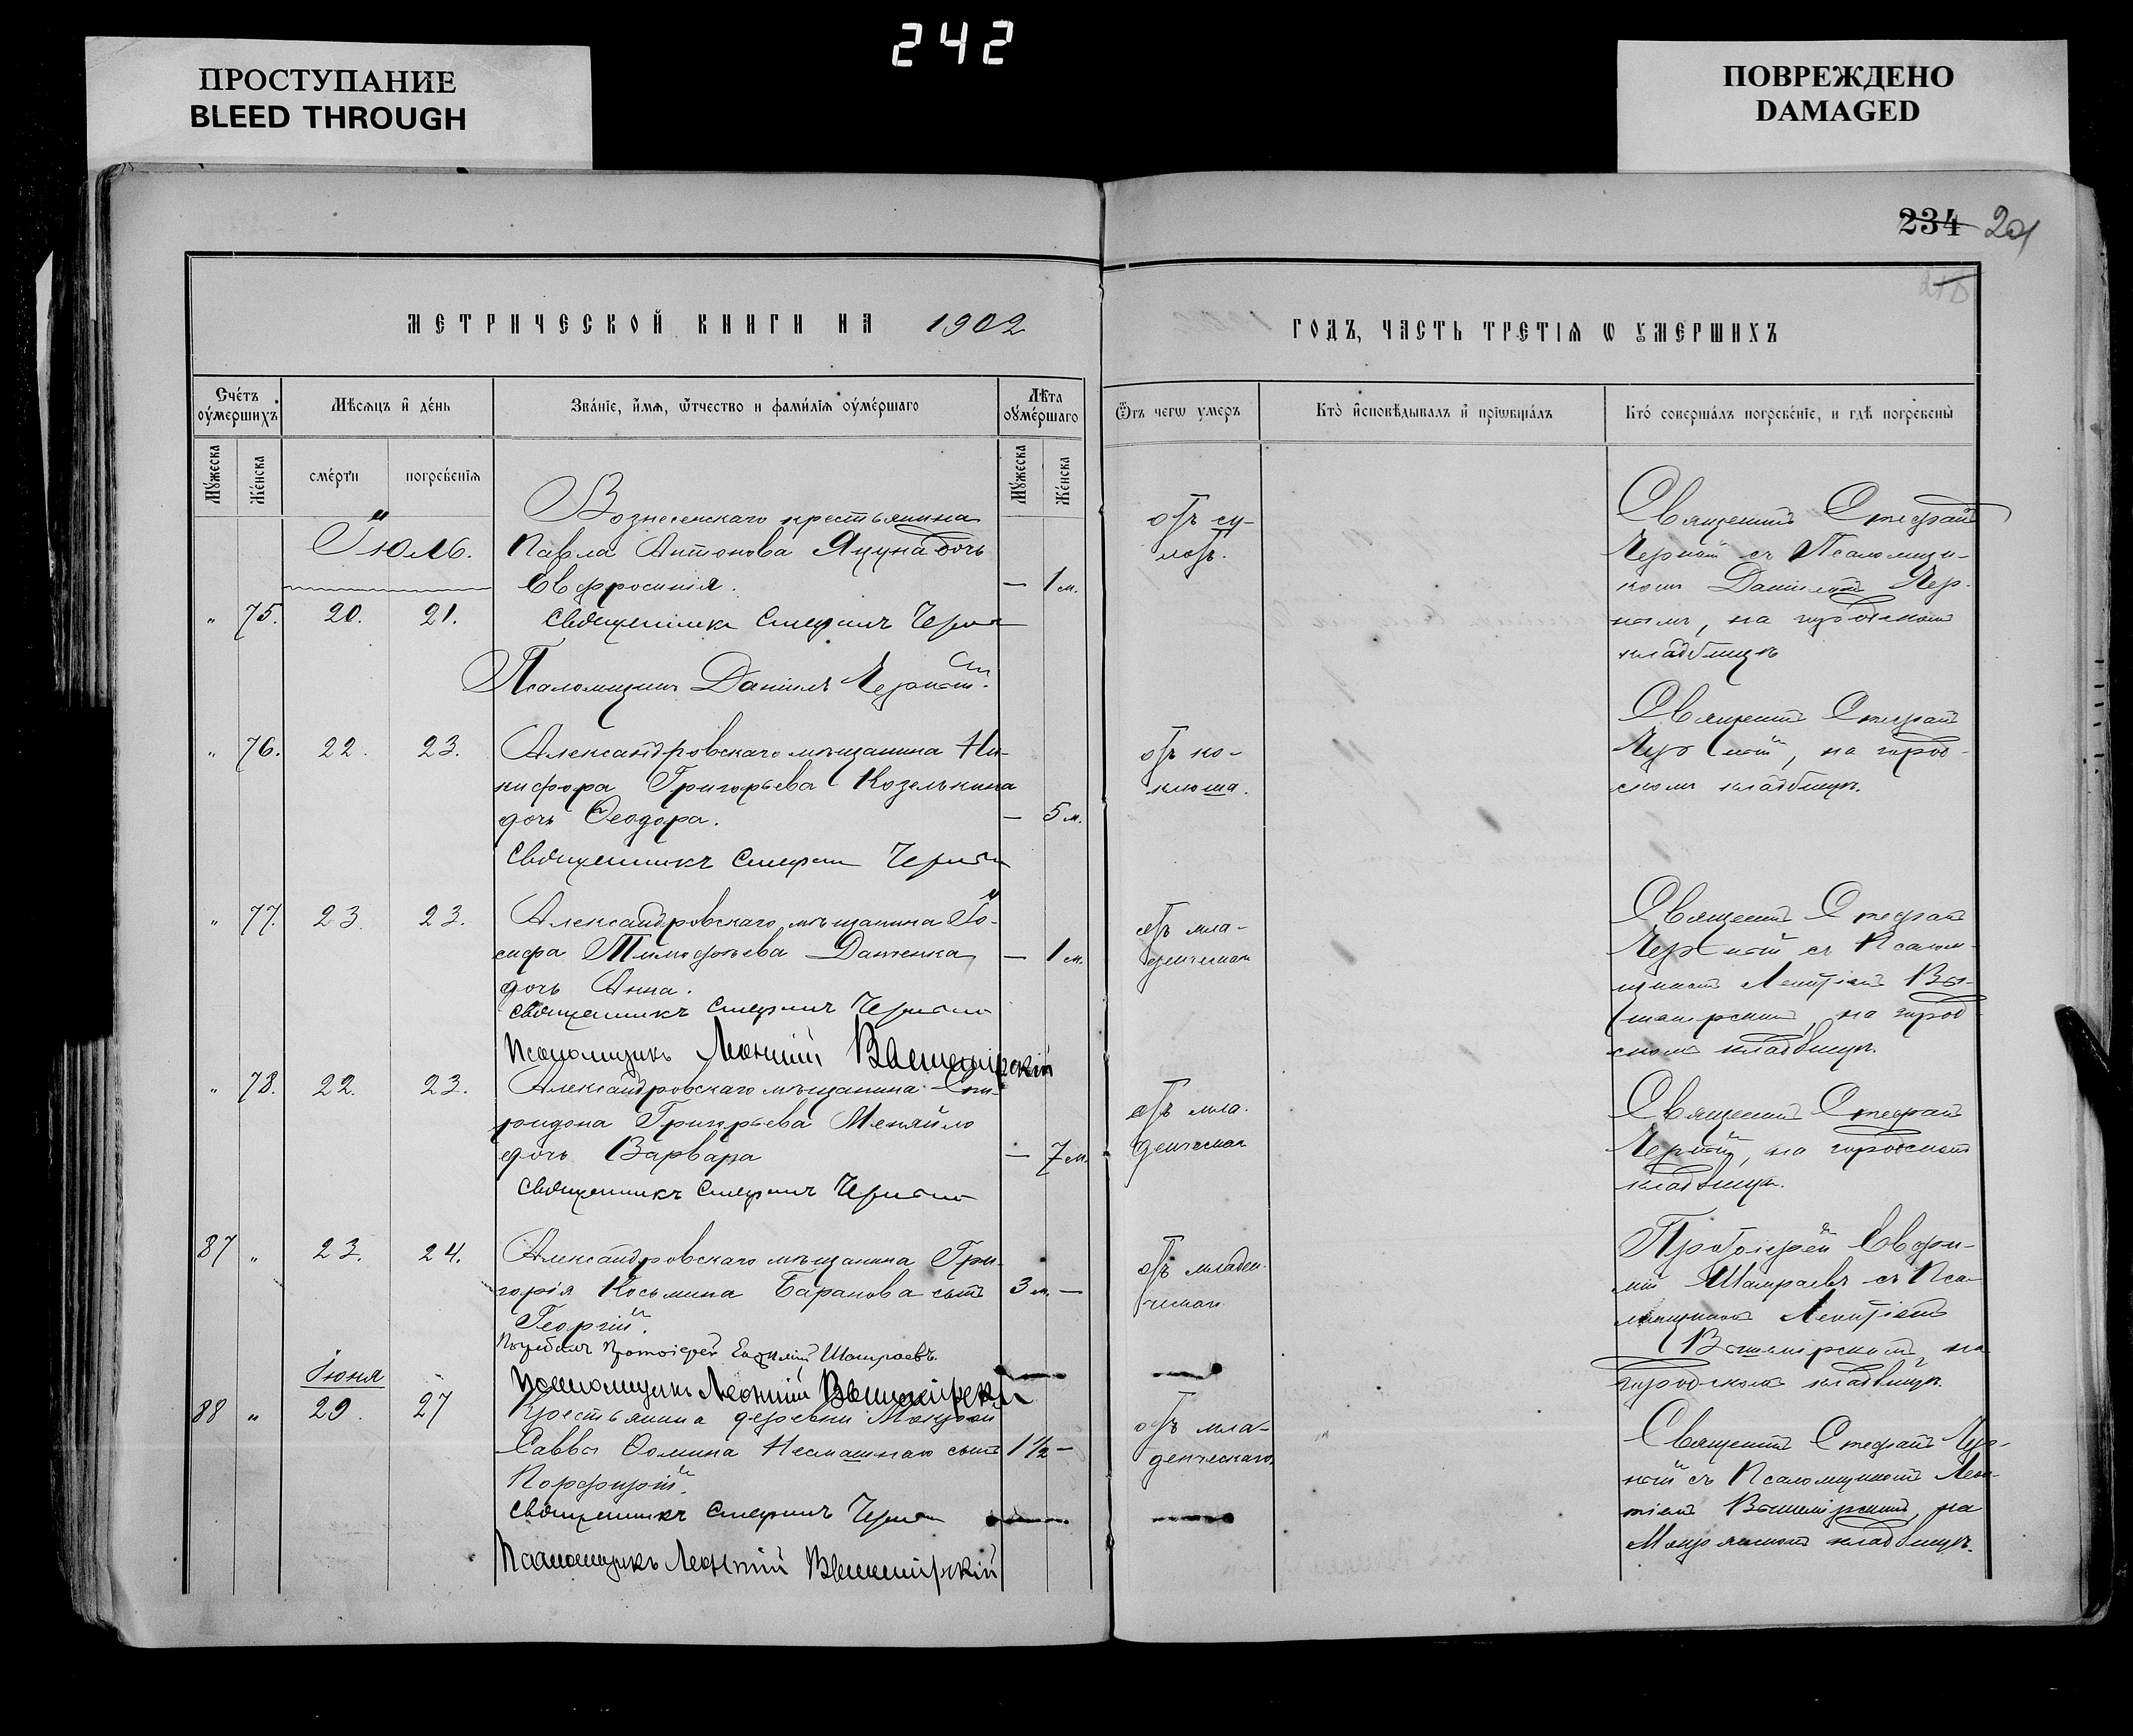 242
ПРОСТУПАНИЕ
BLEED THROUGH
ПОВРЕЖДЕНО
DAMAGED
234 201
МЕТРИЧЕСКОЙ КНИГИ НА 1902
ГОДЪ, ЧАСТЬ ТРЕТІѦ Ѡ ᲂУМЕРШИХЪ
Счетъ оумершихъ
Мѣсяцъ и день
Званіе, имя, ѿчество и фамилія оумершаго
Лѣта оумершаго
Ѿъ чегω умеръ
Кто исповѣдывалъ и пріωбщалъ
Кто совершалъ погребеніе, и гдѣ погребены
Мужеска
Женска
смерти
погребенія
Мужеска
Женска
Іюль.
Вознесенскаго крестьянина
Павла Антонова Яцуна дочь
Евфросинія. — 1 м.
" 75. 20. 21.
Священникъ Стефанъ Черный
Псаломщикъ Даніилъ Черный.
отъ су-
дотъ.
Священник Стефан
Черный съ Псаломщи-
ком Даніилом Чер-
ным, на городском
кладбищѣ
" 76. 22. 23. Александровскаго мѣщанина Ни-
кифора Григорьева Козелькина
дочь Ѳеодора. — 5 м.
Священникъ Стефан Черный
отъ ко-
клюша.
Священник Стефан
Черный, на город-
ском кладбищѣ.
" 77. 23. 23. Александровскаго мѣщанина Іо-
сифа Тимофеева Данченка — 1 м.
дочь Анна.
Священникъ Стефанъ Черный
Псаломщикъ Леонтій Вышемірскій
отъ мла-
денческой
Священник Стефан
Черный съ Псалом-
щиком Леонтіем Вы-
шемірским, на город-
ском кладбищѣ.
" 78. 22. 23. Александровскаго мѣщанина Спи-
ридона Григорьева Меняйло
дочь Варвара — 7 м.
Священникъ Стефанъ Черный
отъ мла-
денческой
Священник Стефан
Черный, на городском
кладбищѣ.
87 " 23. 24. Александровскаго мѣщанина Гри-
горія Косьмина Баранова сынъ 3 м. —
Георгій.
Протоіерей Евфимій Шамраевъ
Псаломщикъ Леонтій Вышемірскій
отъ младен-
ческой
Протоіерей Евфи-
мій Шамраевъ съ Пса-
ломщиком Леонтіем
Вышемірским, на
городском кладбищѣ.
Іюня
88 " 29. 27 Крестьянина деревни Мокрой
Саввы Ѳомина Несмашнаго сынъ 1½ —
Порфирій.
Священникъ Стефанъ Черный
Псаломщикъ Леонтій Вышемірскій
отъ мла-
денческаго.
Священник Стефан Чер-
ный съ Псаломщиком Леон-
тіем Вышемірским, на
Мокрянском кладбищѣ.